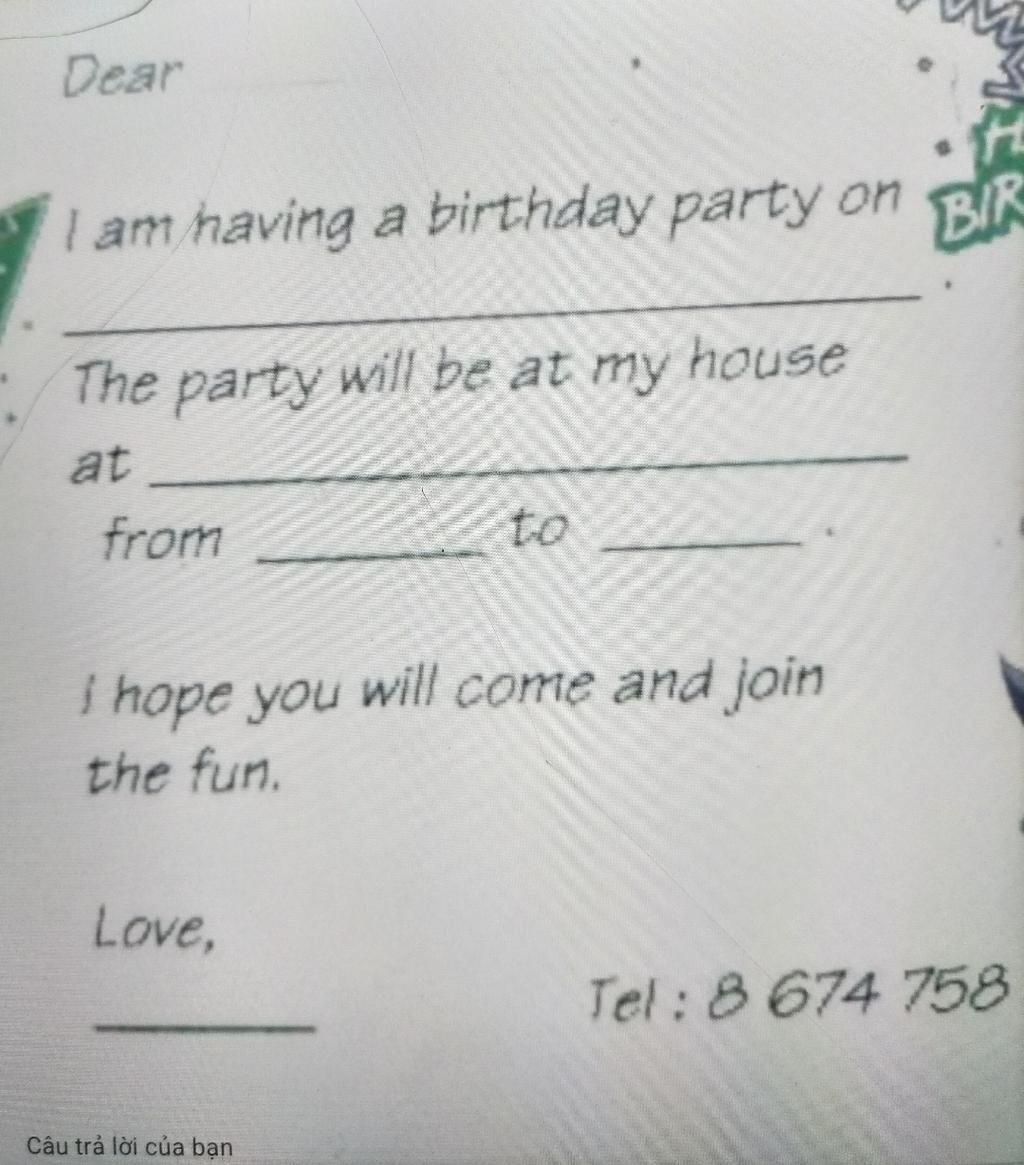 Dear
I am having a birthday party on
BIR
The party will be at my house
at
from to .
I hope you will come and join
the fun.
Love,
Tel : 8 674 758
Câu trả lời của bạn